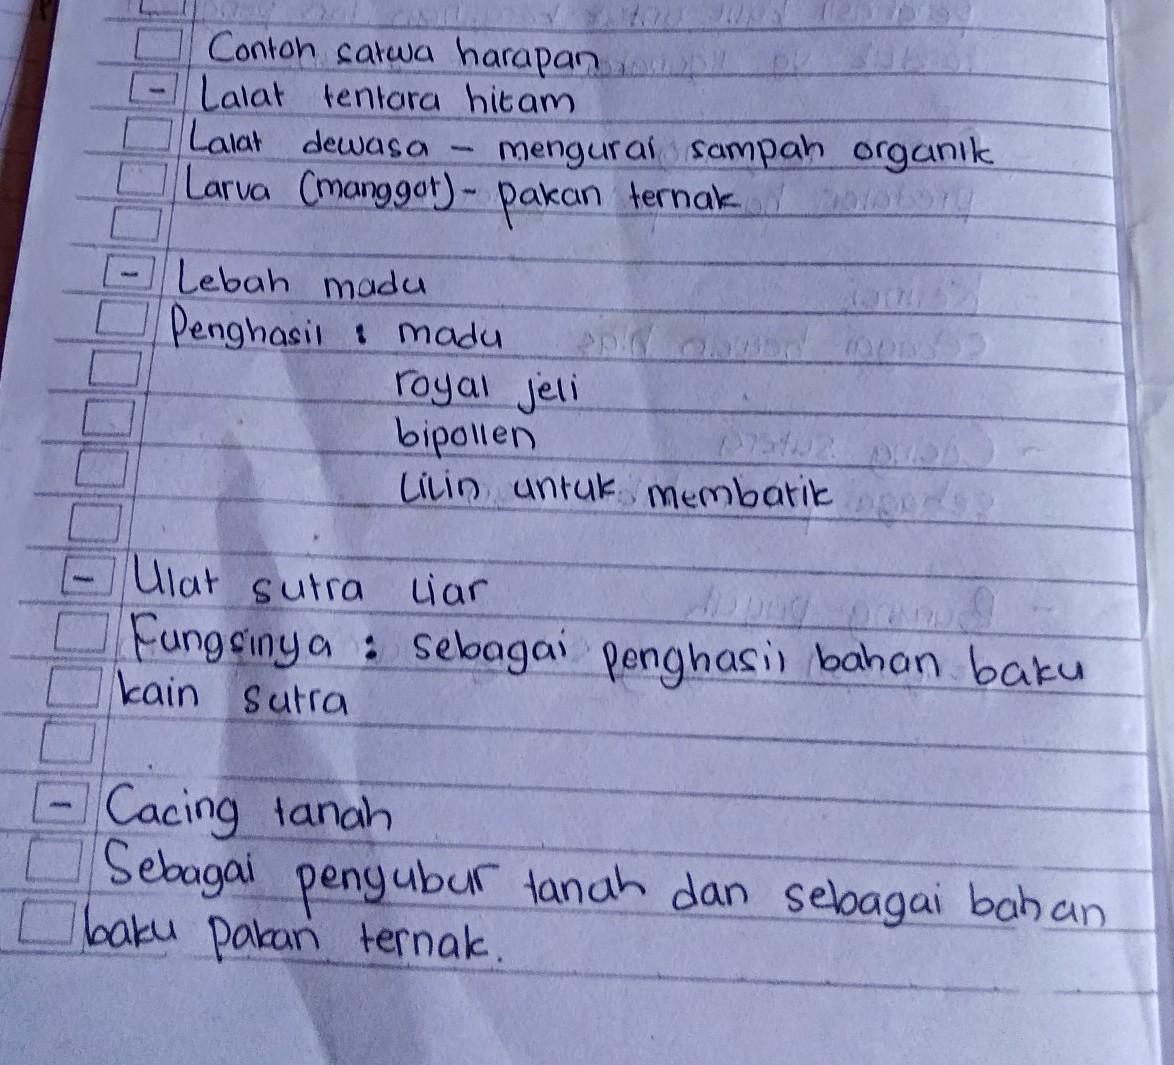 Contoh satwa harapan
- Lalat tentara hitam
Lalat dewasa - mengurai sampah organik
Larva (manggot) - pakan ternak
- Lebah madu
Penghasil : madu
royal jeli
bipollen
Lilin untuk membatik
- Ulat sutra liar
Fungsinya : sebagai penghasil bahan baku
kain sutra
- Cacing tanah
Sebagai penyubur tanah dan sebagai bahan
baku pakan ternak.